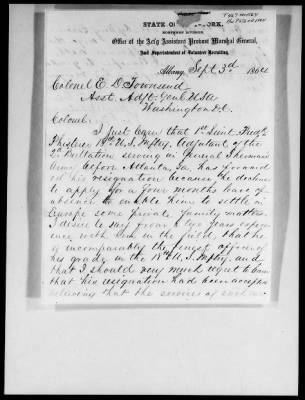 STATE OF NEW YORK,
NORTHERN DIVISION.
Office of the Act'g Assistant Provost Marshal General,
And Superintendent of Volunteer Recruiting,
Albany, Sept 3d 1864
Colonel E. D. Townsend
Asst. Adjt. Genl. U.S.A.
Washington D.C.
Colonel.
I just learn that 1st Lieut. Fredk
Phisterer 18th U.S. Infty. Adjutant of the
2d Battalion serving in General Sherman's
Army before Atlanta Ga. has forwarded
his resignation because he desires
to apply for a four months leave of
absence to enable him to settle in
Europe some private family matters.
I desire to say from a two years experience
with him in the field, that he
is incomparably the finest officer of
his grade in the 18th U.S. Infty. and
that I should very much regret to learn
that his resignation had been accepted
believing that the services of such an